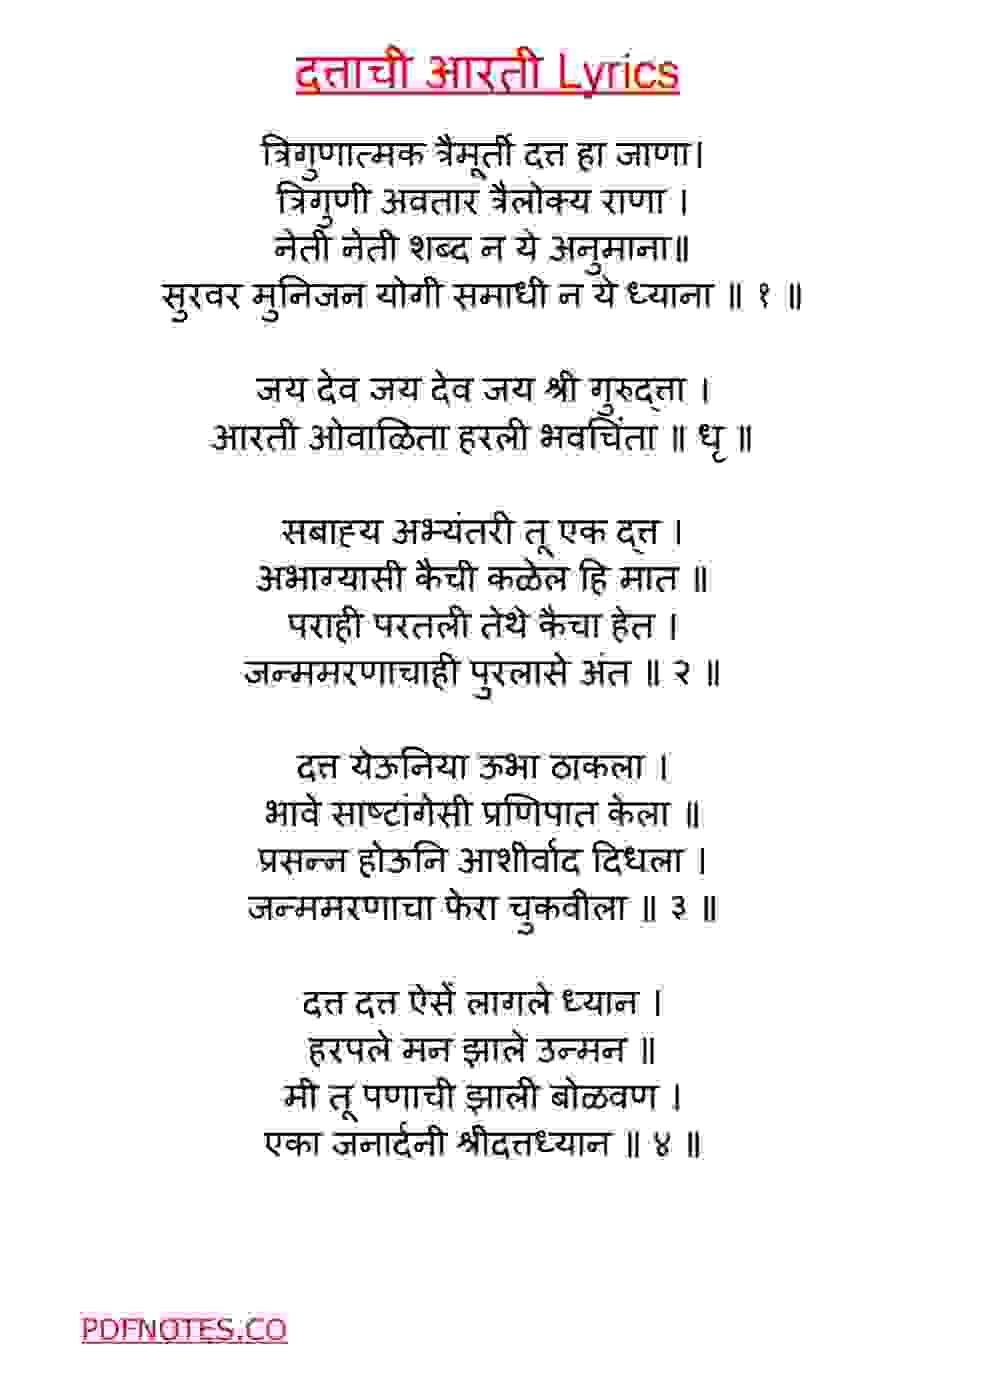 दत्ताची आरती Lyrics
त्रिगुणात्मक त्रैमूर्ती दत्त हा जाणा।
त्रिगुणी अवतार त्रैलोक्य राणा ।
नेती नेती शब्द न ये अनुमाना॥
सुरवर मुनिजन योगी समाधी न ये ध्याना ॥ १ ॥
जय देव जय देव जय श्री गुरुद्त्ता ।
आरती ओवाळिता हरली भवचिंता ॥ धृ ॥
सबाह्य अभ्यंतरी तू एक द्त्त ।
अभाग्यासी कैची कळेल हि मात ॥
पराही परतली तेथे कैचा हेत ।
जन्ममरणाचाही पुरलासे अंत ॥ २ ॥
दत्त येऊनिया ऊभा ठाकला ।
भावे साष्टांगेसी प्रणिपात केला ॥
प्रसन्न होऊनि आशीर्वाद दिधला ।
जन्ममरणाचा फेरा चुकवीला ॥ ३ ॥
दत्त दत्त ऐसें लागले ध्यान ।
हरपले मन झाले उन्मन ॥
मी तू पणाची झाली बोळवण ।
एका जनार्दनी श्रीदत्तध्यान ॥ ४ ॥
PDFNOTES.CO